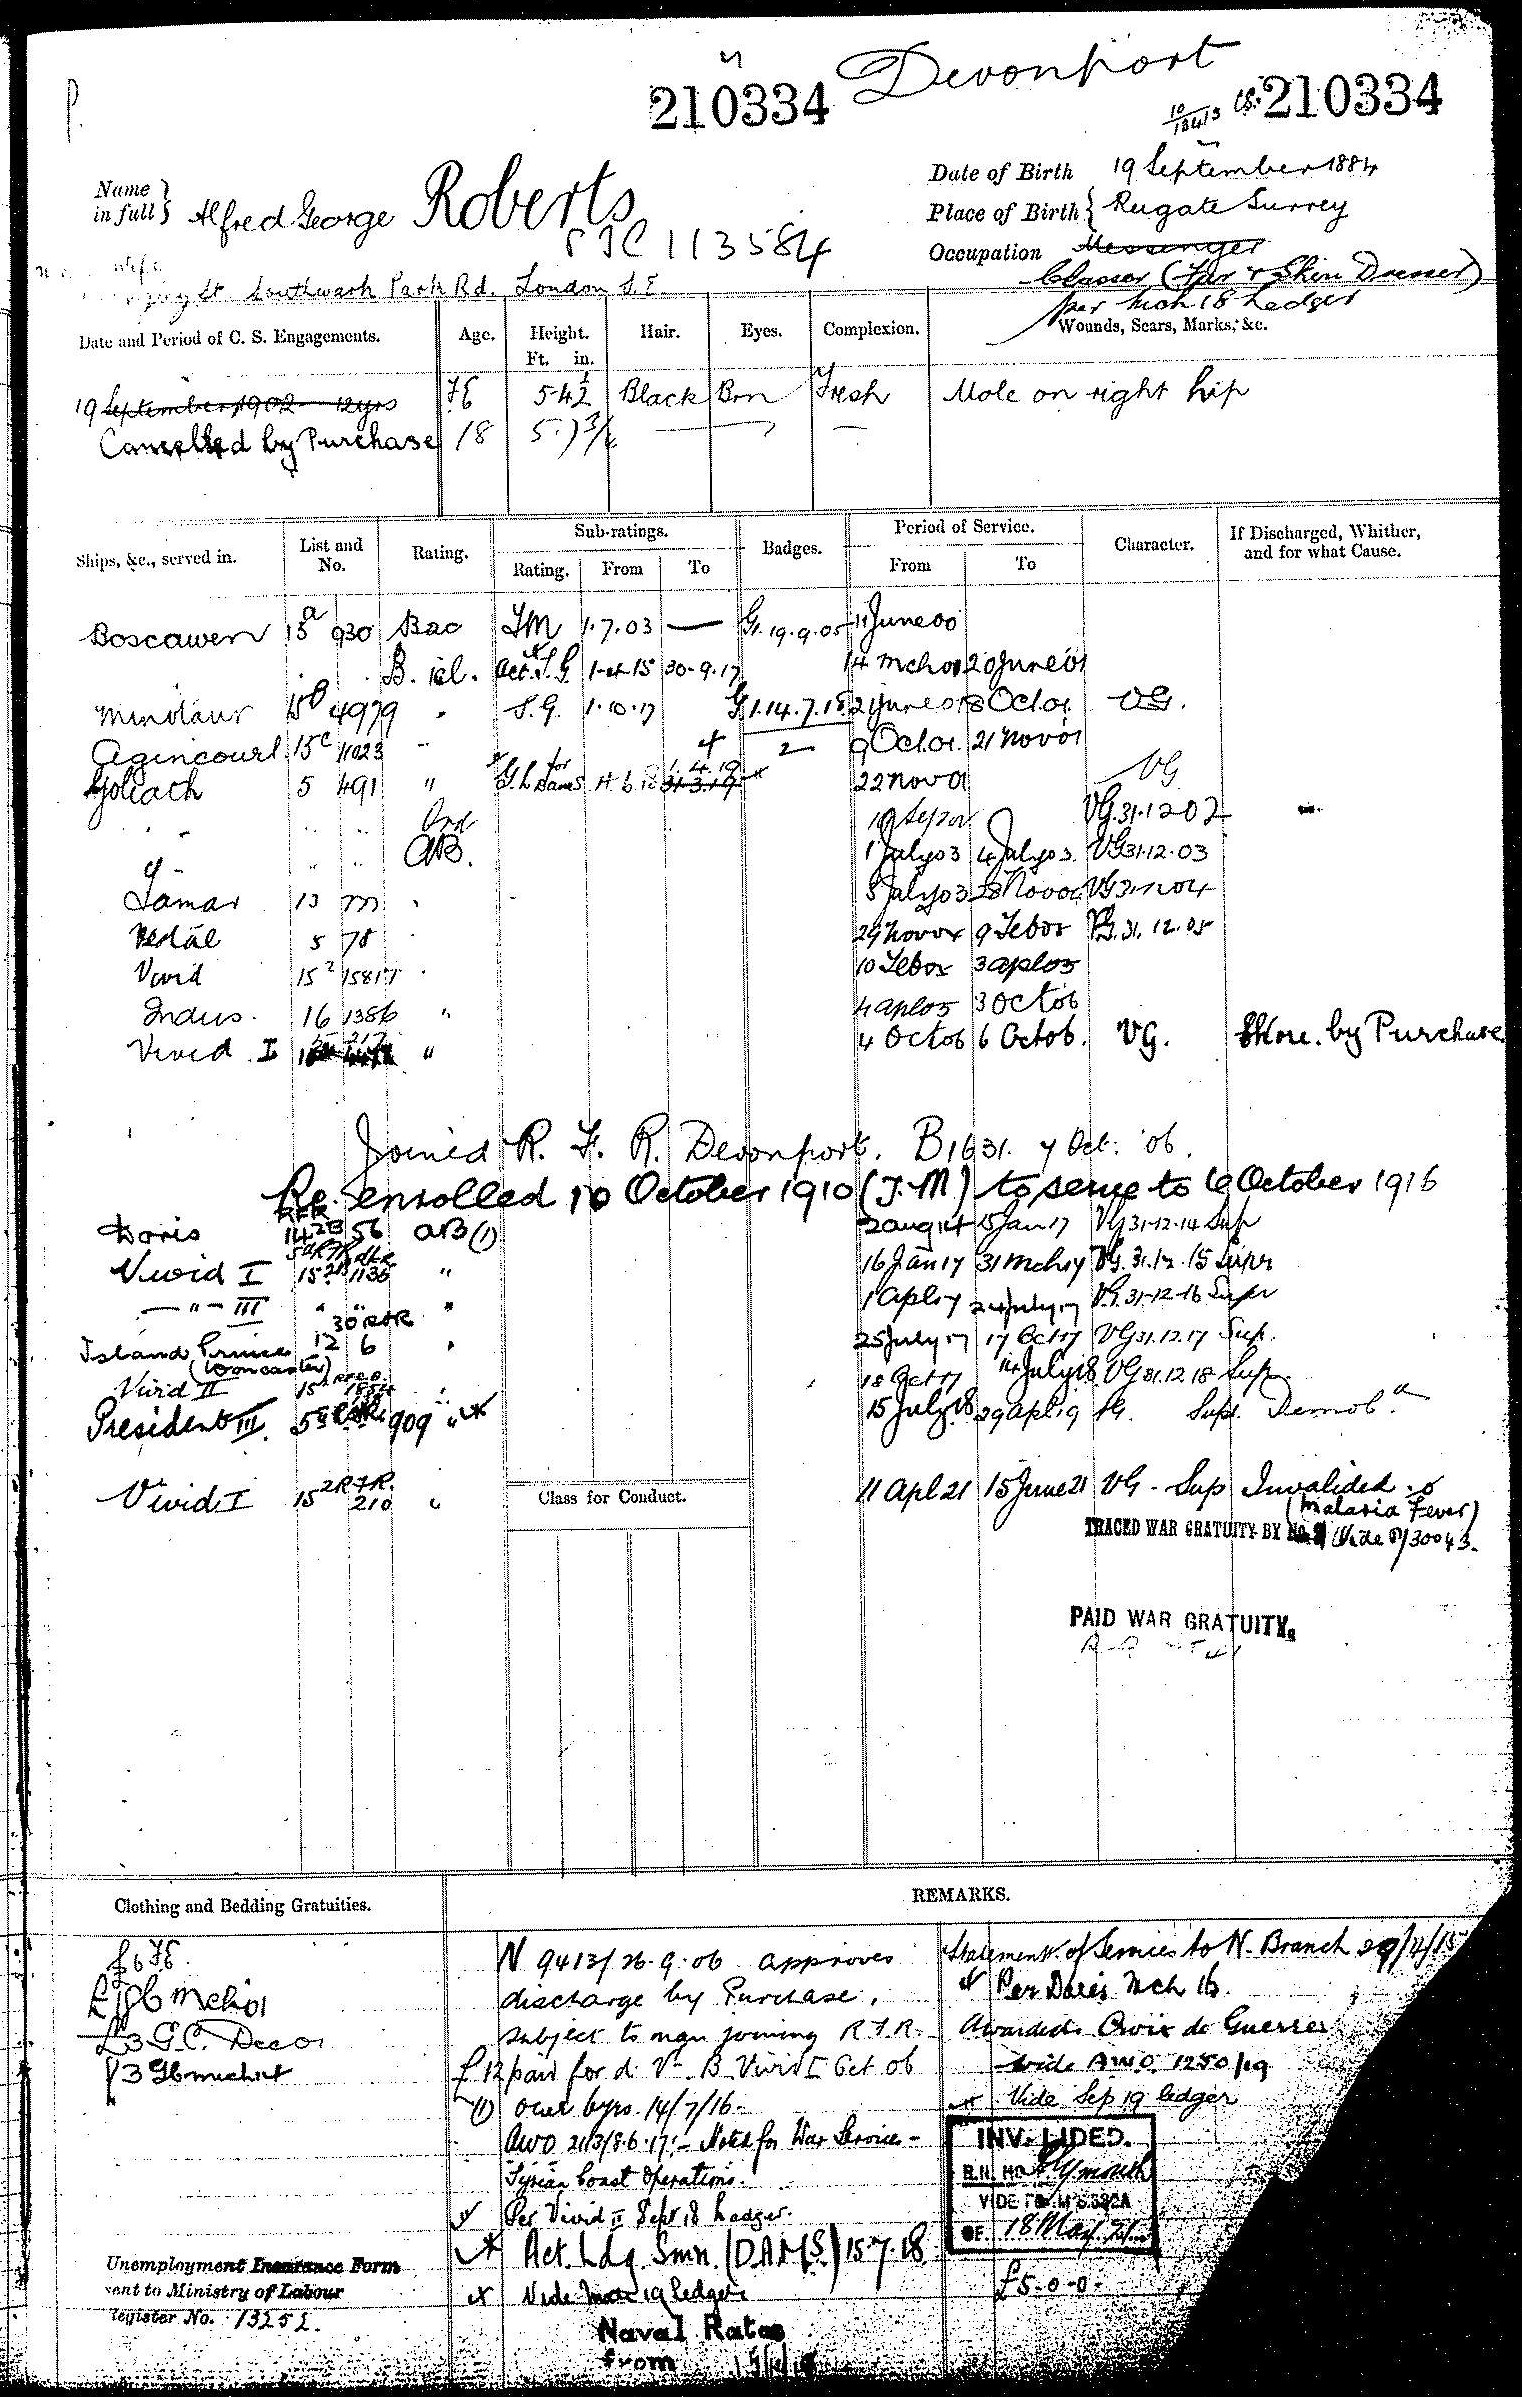 Devonport
210334
210334
Name in full } Alfred George Roberts
113584
Date of Birth 19 September 1884
Place of Birth } Reigate Surrey
Occupation Messenger
Classer (Fur & Skin Dresser)
per Mch 18 Ledger
Southwark Park Rd. London S.E.
Date and Period of C. S. Engagements. Age. Height. Ft. in. Hair. Eyes. Complexion. Wounds, Scars, Marks, &c.
19 September 1902 12 yrs 5·4½ Black Brn Fresh Mole on right hip
Cancelled by Purchase 18
Ships, &c., served in. List and No. Rating. Sub-ratings. Rating. From To Badges. Period of Service. From To Character. If Discharged, Whither, and for what Cause.
Boscawen 15a 930 TM 1.7.03 — G1.19.9.05 11 June 00
1.4.15 30.9.17 20 June 01
Minotaur 4979 " S.G. 1.10.17 G1.14.7.18 21 June 01 8 Oct 01 VG.
Agincourt 15c " 2 9 Oct 01 21 Nov 01
Goliath 5 491 " 22 Nov 01 VG
" " " Ord 19 Sep 02 VG 31.12.02
" " AB. 1 July 03 4 July 03 VG 31.12.03
Tamar 13 " 5 July 03
Vestal 5 78 " 9 Feb 05 VG. 31.12.05
Vivid 15² " 10 Feb 05 3 Apl 05
Indus 16 1386 " 4 Apl 05 3 Oct 06
Vivid I " 4 Oct 06 6 Oct 06. VG. Shore. by Purchase
Joined R. F. R. Devonport. B1631. 7 Oct. '06.
Re-enrolled 10 October 1910 (T.M.) to serve to 6 October 1916
Doris 56 AB (1) 2 Aug 14 15 Jan 17 VG 31-12-14 Sup
Vivid I " 16 Jan 17 31 Mch 17 VG. 31.12.15 Supr
— " — III " " " 1 Apl 17 24 July 17 VG 31-12-16 Supr
Island Prince 12 6 " 25 July 17 17 Oct 17 VG 31.12.17 Sup.
(Doncaster)
Vivid II " 18 Oct 17 14 July 18 VG 31.12.18 Sup.
President III. 909 " 15 July 18 29 Apl 19 VG. Sup. Demobd
Vivid I 15² R.F.R. 210 " 11 Apl 21 15 June 21 VG - Sup Invalided
(Malaria Fever)
Class for Conduct.
TRACED WAR GRATUITY BY
PAID WAR GRATUITY.
Clothing and Bedding Gratuities.
REMARKS.
£3 G.C. Dec 01
N 9413/26.9.06 approves
discharge by Purchase,
subject to man joining R.F.R.
£12 paid for d. Vivid I Oct 06
(1) over 6 yrs 14/7/16 -
AWO 213/8.6.17:- Noted for War Service -
Syrian Coast Operations.
Per Vivid II Sept 18 Ledger.
Act. Ldg. Smn. (D.A.M.S.) 15.7.18.
Vide Mar 19 Ledger
Naval Rates
from
Statement of Services to N. Branch
Per Doris Mch 16.
Awarded Croix de Guerre
vide AWO 1250/19
Vide Sep 19 ledger
INVALIDED.
R.N. HO Plymouth
OF. 18 May 21
£5-0-0-
Unemployment Insurance Form
sent to Ministry of Labour
Register No. 13252.